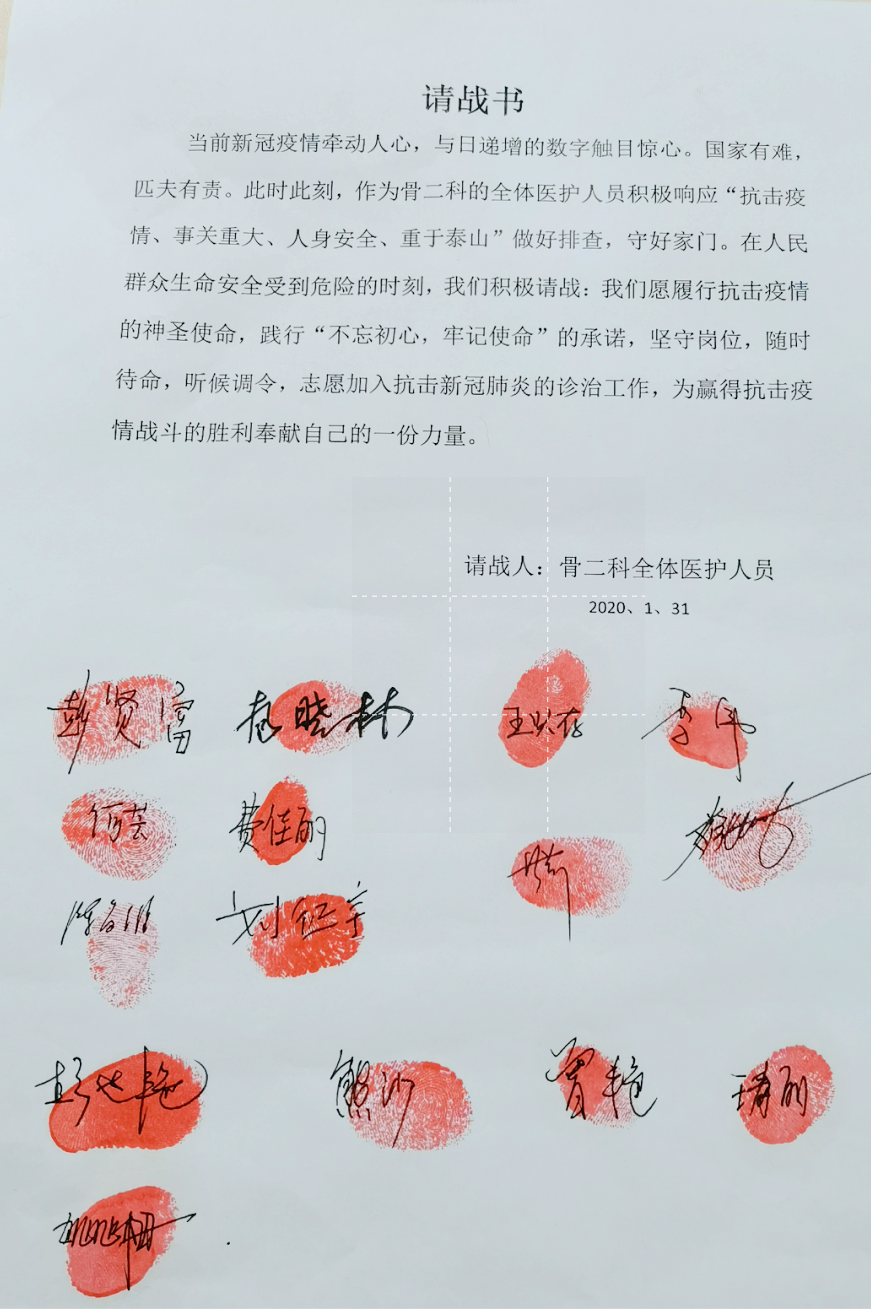 请战书
当前新冠疫情牵动人心，与日递增的数字触目惊心。国家有难，
匹夫有责。此时此刻，作为骨二科的全体医护人员积极响应“抗击疫
情、事关重大、人身安全、重于泰山”做好排查，守好家门。在人民
群众生命安全受到危险的时刻，我们积极请战：我们愿履行抗击疫情
的神圣使命，践行“不忘初心，牢记使命”的承诺，坚守岗位，随时
待命，听候调令，志愿加入抗击新冠肺炎的诊治工作，为赢得抗击疫
情战斗的胜利奉献自己的一份力量。
请战人：骨二科全体医护人员
2020、1、31
彭贤富 李伟
何芸 费佳丽
熊沙 曾艳